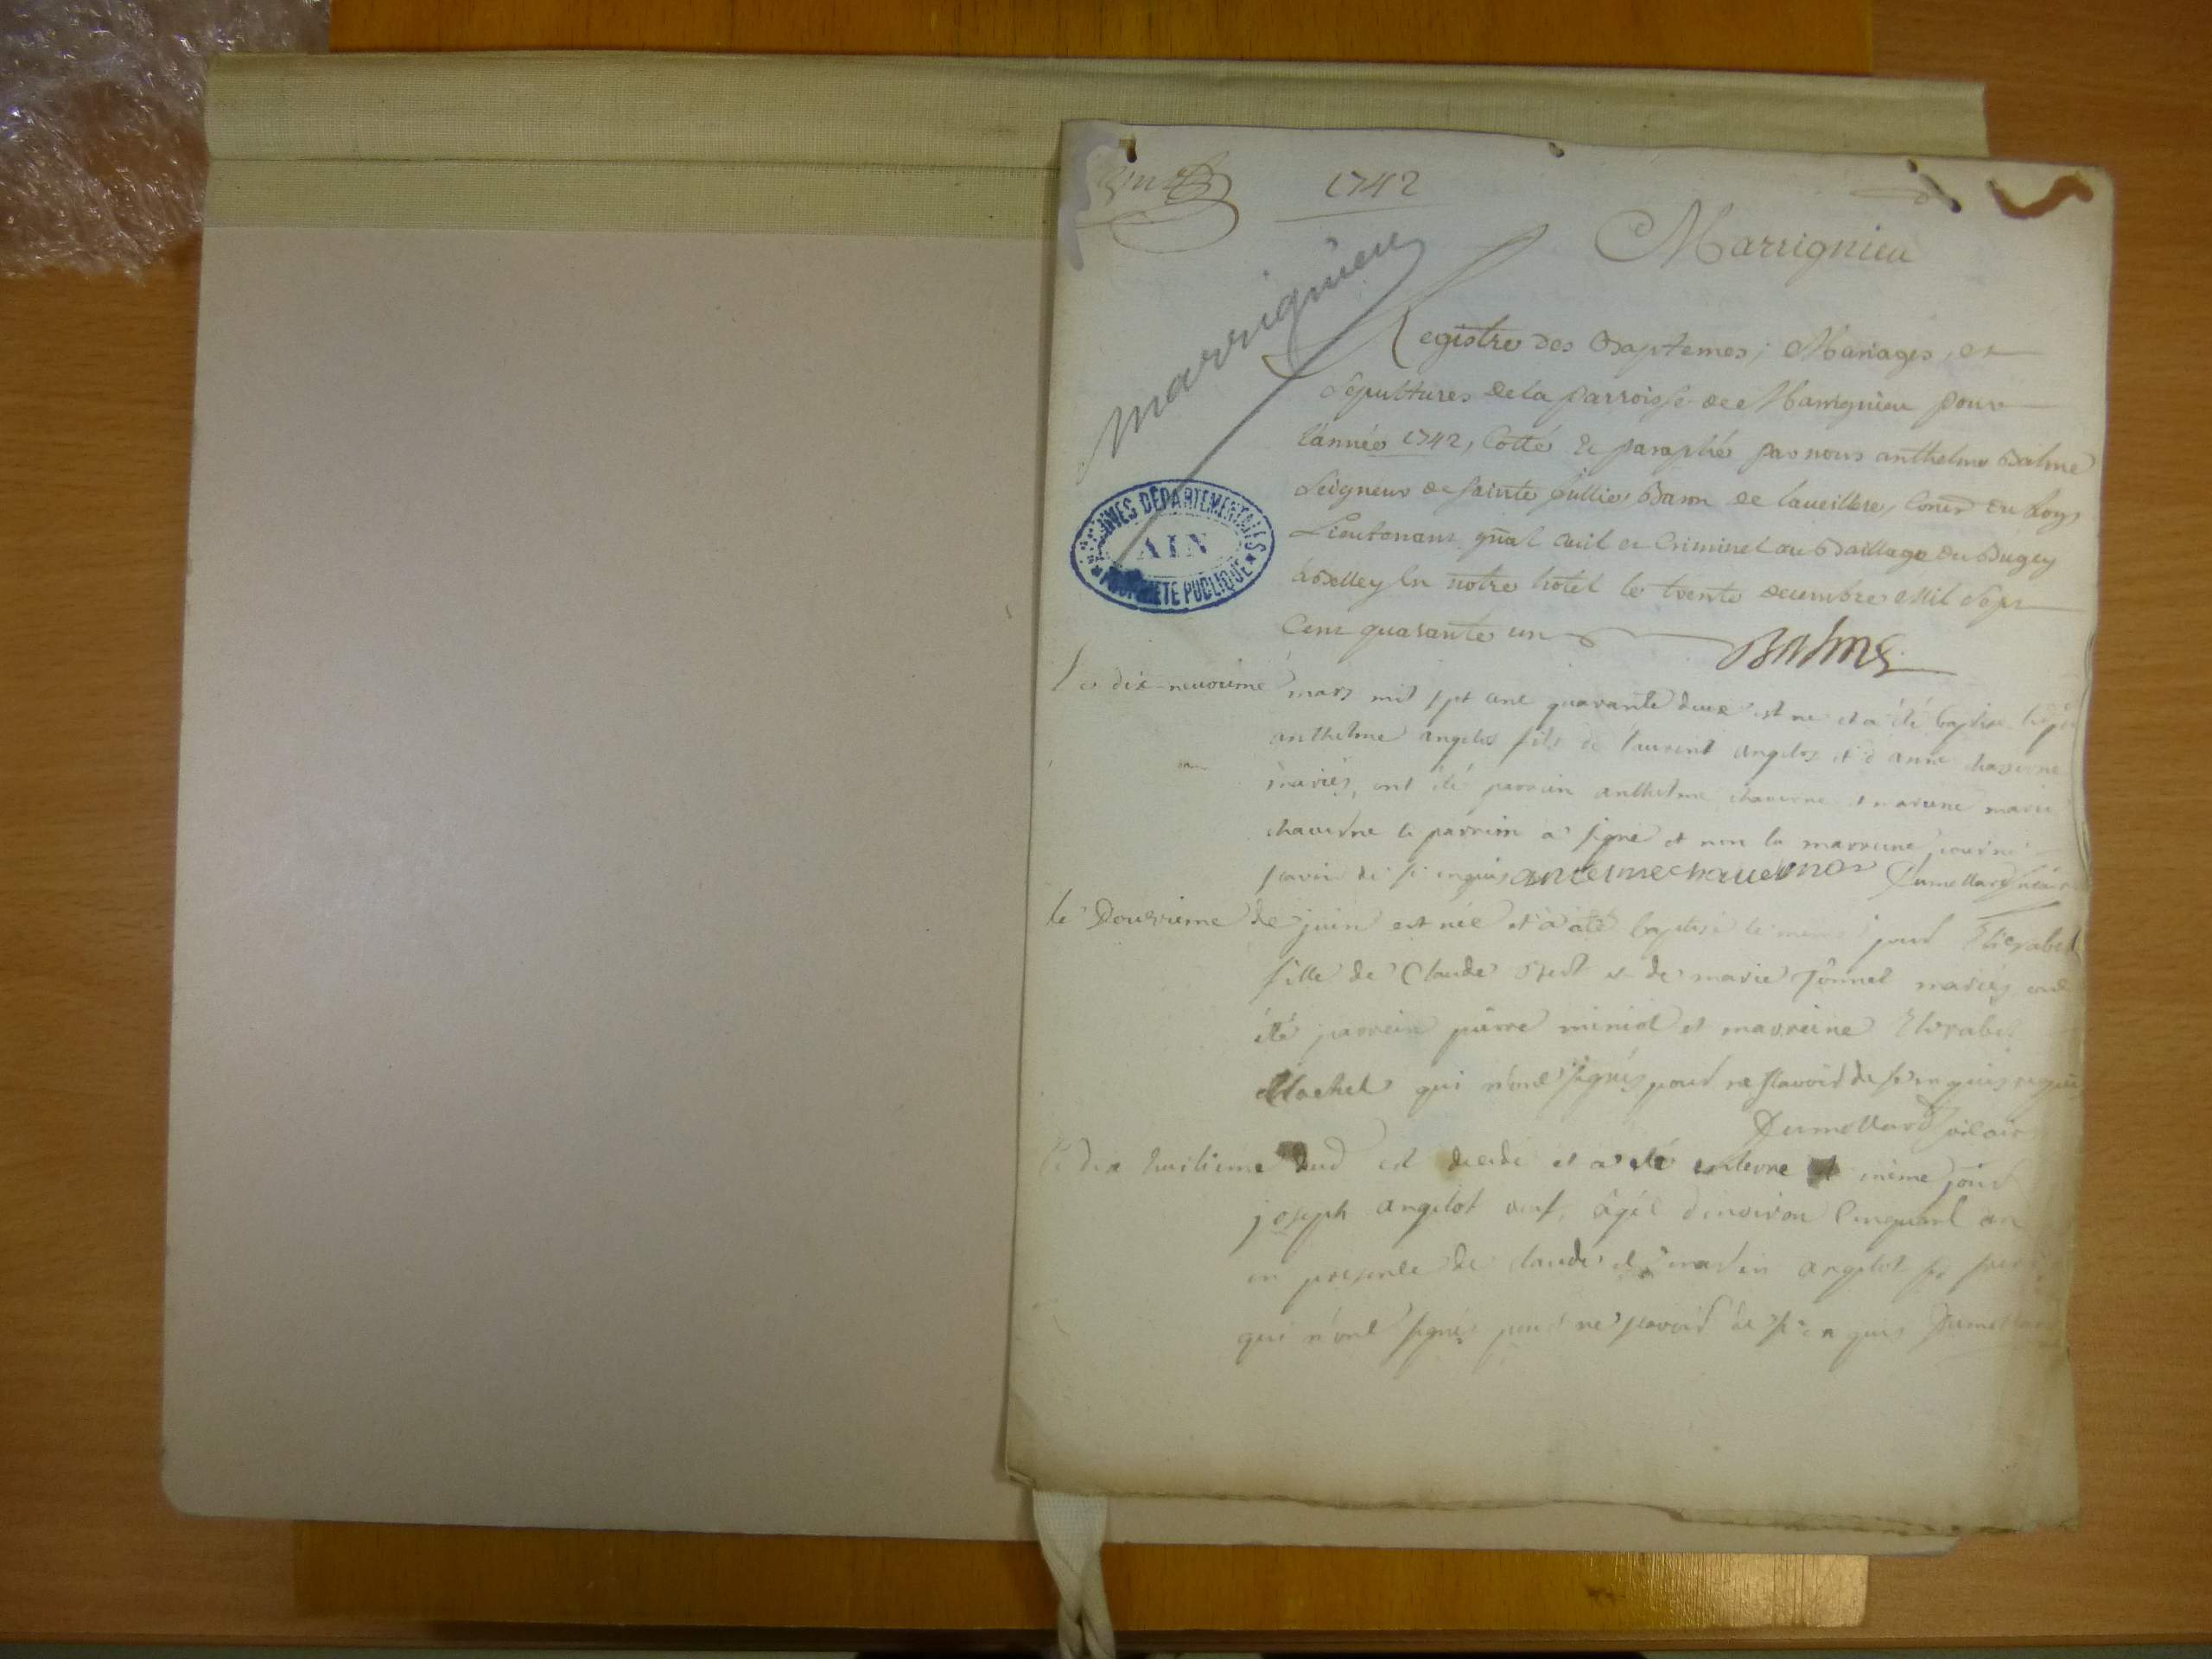 1742
Marrignieu
Marrignieu
Registre des Baptemes, Mariages, et
Sepultures de la parroisse de Marrignieu pour
l'année 1742, Cotté et paraphé par nous anthelme Balme
Seigneur de sainte Jullie, Baron de Conser du Roy
Lieutenant gñal civil et Criminel au Baillage du Bugey
à Belley En notre hotel le trente decembre Mil Sept
Cent quarante un
Balme
ARCHIVES DÉPARTEMENTALES
AIN
PROPRIÉTÉ PUBLIQUE
Le dix-neuvieme mars mil sept cent quarante deux est né et a été baptisé
anthelme angelot fils de laurent angelot et d'anne
mariés, ont été parrein anthelme chaverne et mareine marie
chaverne le parrein a signé et non la marreine pour ne
scavoir de ce enquis antelme chauerno Dumollard
le Douzieme de juin est née et a été baptisé le meme jour
fille de Claude et de marie mariés ont
été parrein pierre et marreine
Mochet qui n'ont signés pour ne scavoir de ce enquis requis
Dumollard vicaire
Le dix huitieme dud est decedé et a été enterré le même jour
joseph angelot veuf, âgée d'environ Cinquant an
en presence de claude et martin angelot
qui n'ont signés pour ne scavoir de ce enquis Dumollard